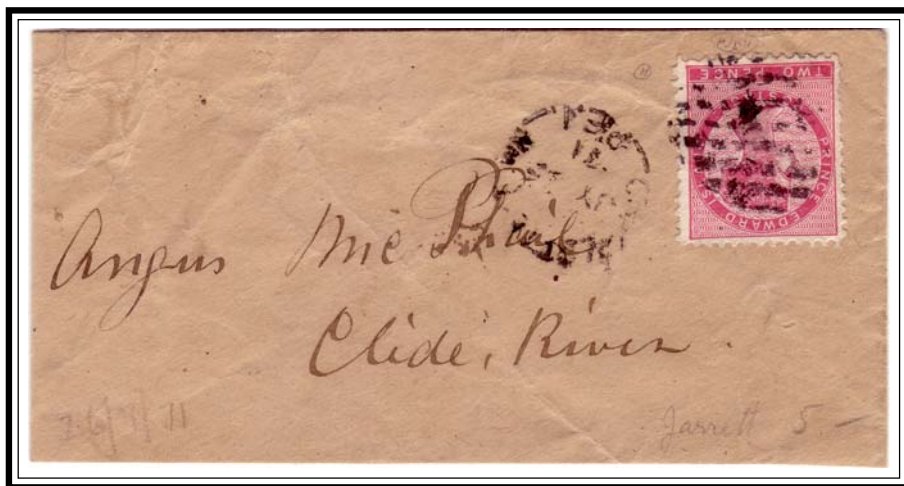 TWO PENCE
PRINCE EDWARD IS
P.E.I.
Angus McPhail
Clide, River.
Jarrett 5.—